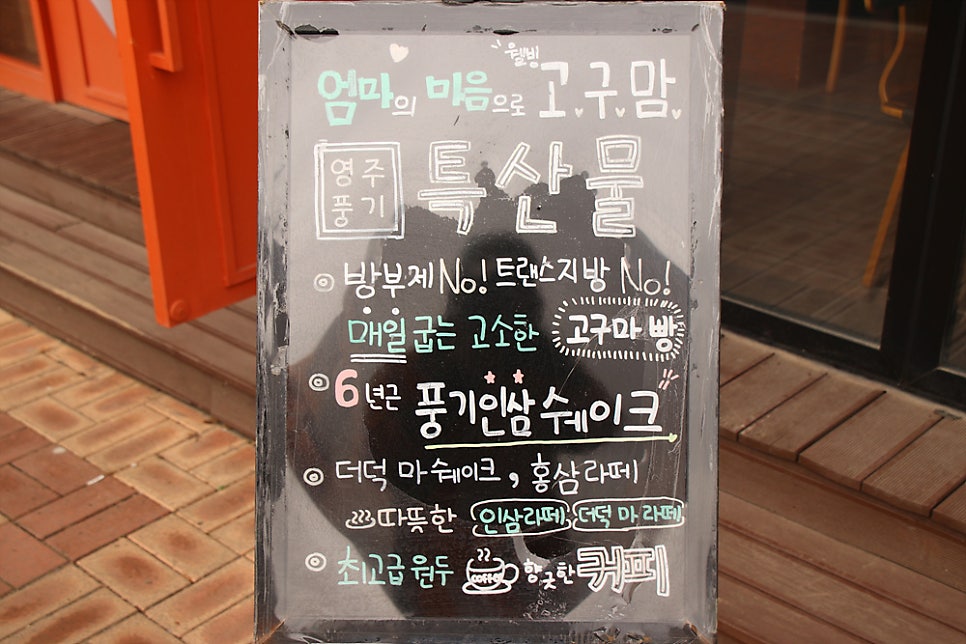 웰빙
엄마의 마음으로 고.구.맘.
영주
풍기
특산물
방부제 No! 트랜스지방 No!
매일 굽는 고소한 고구마 빵
6년근 풍기인삼 쉐이크
더덕 마 쉐이크, 홍삼라떼
따뜻한 인삼라떼 더덕 마 라떼
최고급 원두 COFFEE 향긋한 커피